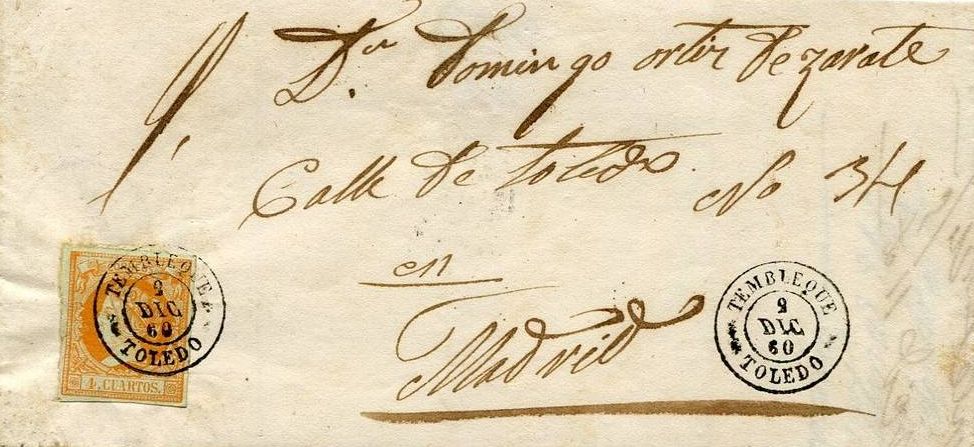 Dn. Domingo ortiz de zarate
Calle de toledo No 34
en
Madrid
TEMBLEQUE
2
DIC
60
TOLEDO
4 CUARTOS.
TEMBLEQUE
2
DIC
60
TOLEDO